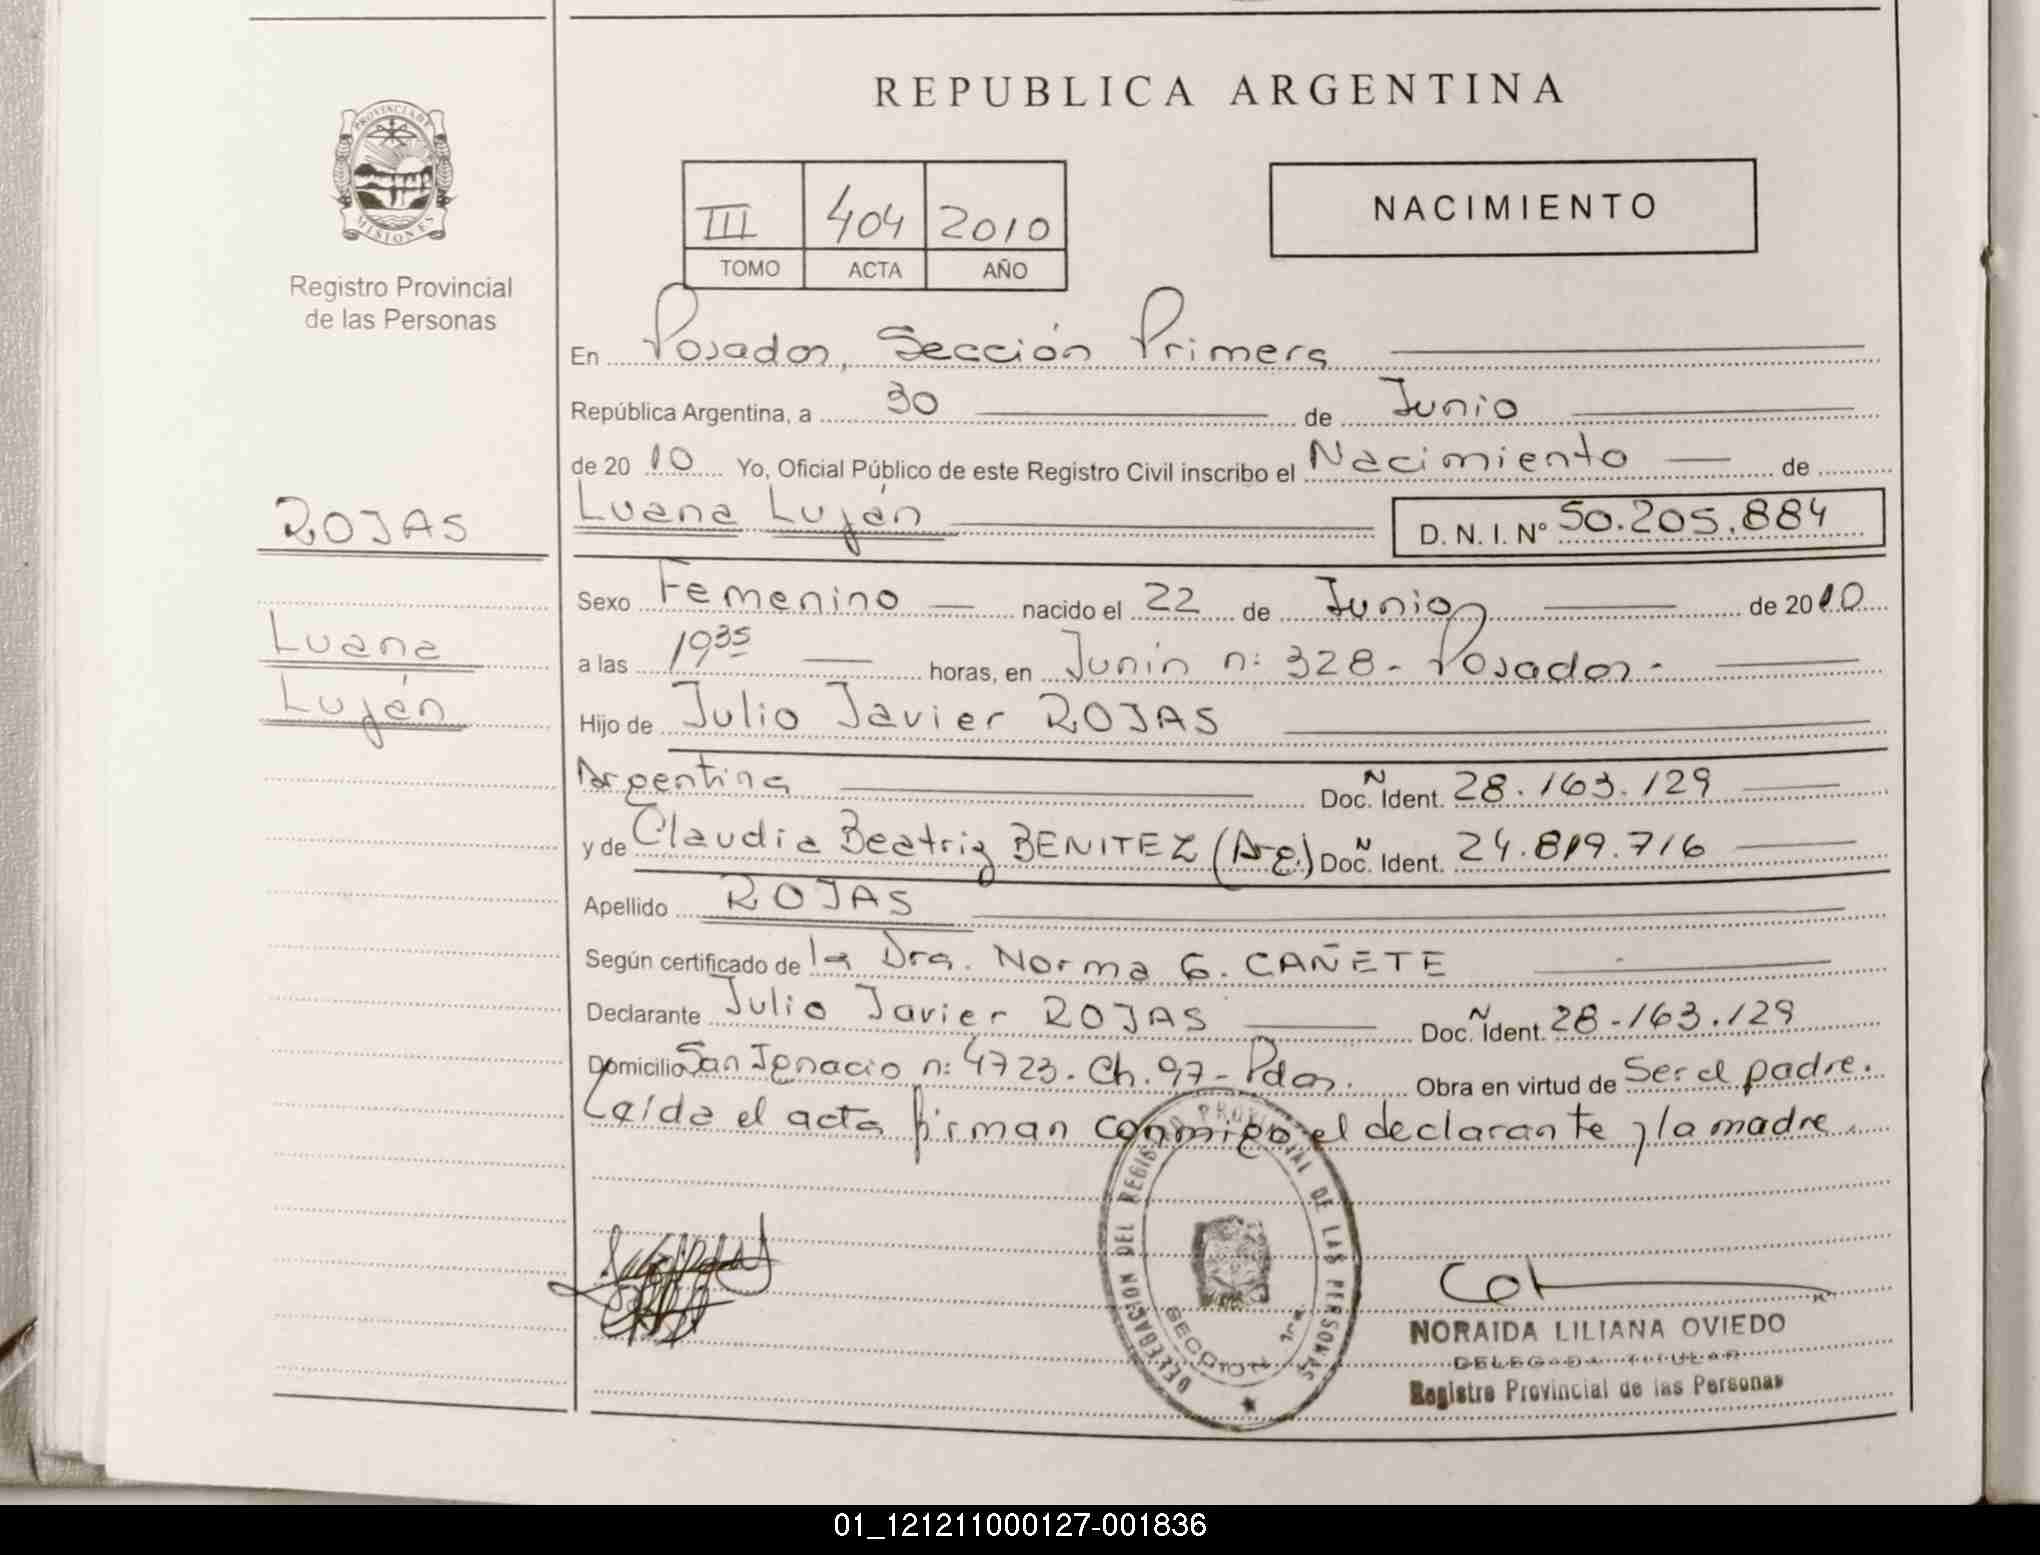 REPUBLICA ARGENTINA
PROVINCIA DE
MISIONES
Registro Provincial
de las Personas
III 404 2010
TOMO ACTA AÑO
NACIMIENTO
En Posadas, Sección Primera
República Argentina, a 30 de Junio
de 20 10 Yo, Oficial Público de este Registro Civil inscribo el Nacimiento de
ROJAS
Luana
Luján
Luana Luján D. N. I. Nº 50.205.884
Sexo Femenino nacido el 22 de Junio de 2010
a las 19 35 horas, en Junín n: 328- Posadas.-
Hijo de Julio Javier ROJAS
Argentina Doc. N Ident. 28.163.129
y de Claudia Beatriz BENITEZ (Arg.) Doc. N Ident. 24.819.716
Apellido ROJAS
Según certificado de la Dra. Norma G. CAÑETE
Declarante Julio Javier ROJAS Doc. N Ident. 28.163.129
Domicilio San Ignacio n: 4723. Ch. 97- Pdas. Obra en virtud de Ser el padre.
Leída el acta firman conmigo el declarante y la madre.
DELEGACION DEL REGISTRO PROVINCIAL DE LAS PERSONAS
SECCION 1ra
NORAIDA LILIANA OVIEDO
DELEGADA TITULAR
Registro Provincial de las Personas
01_121211000127-001836